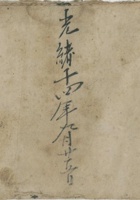 光緒十四年九月廿六日